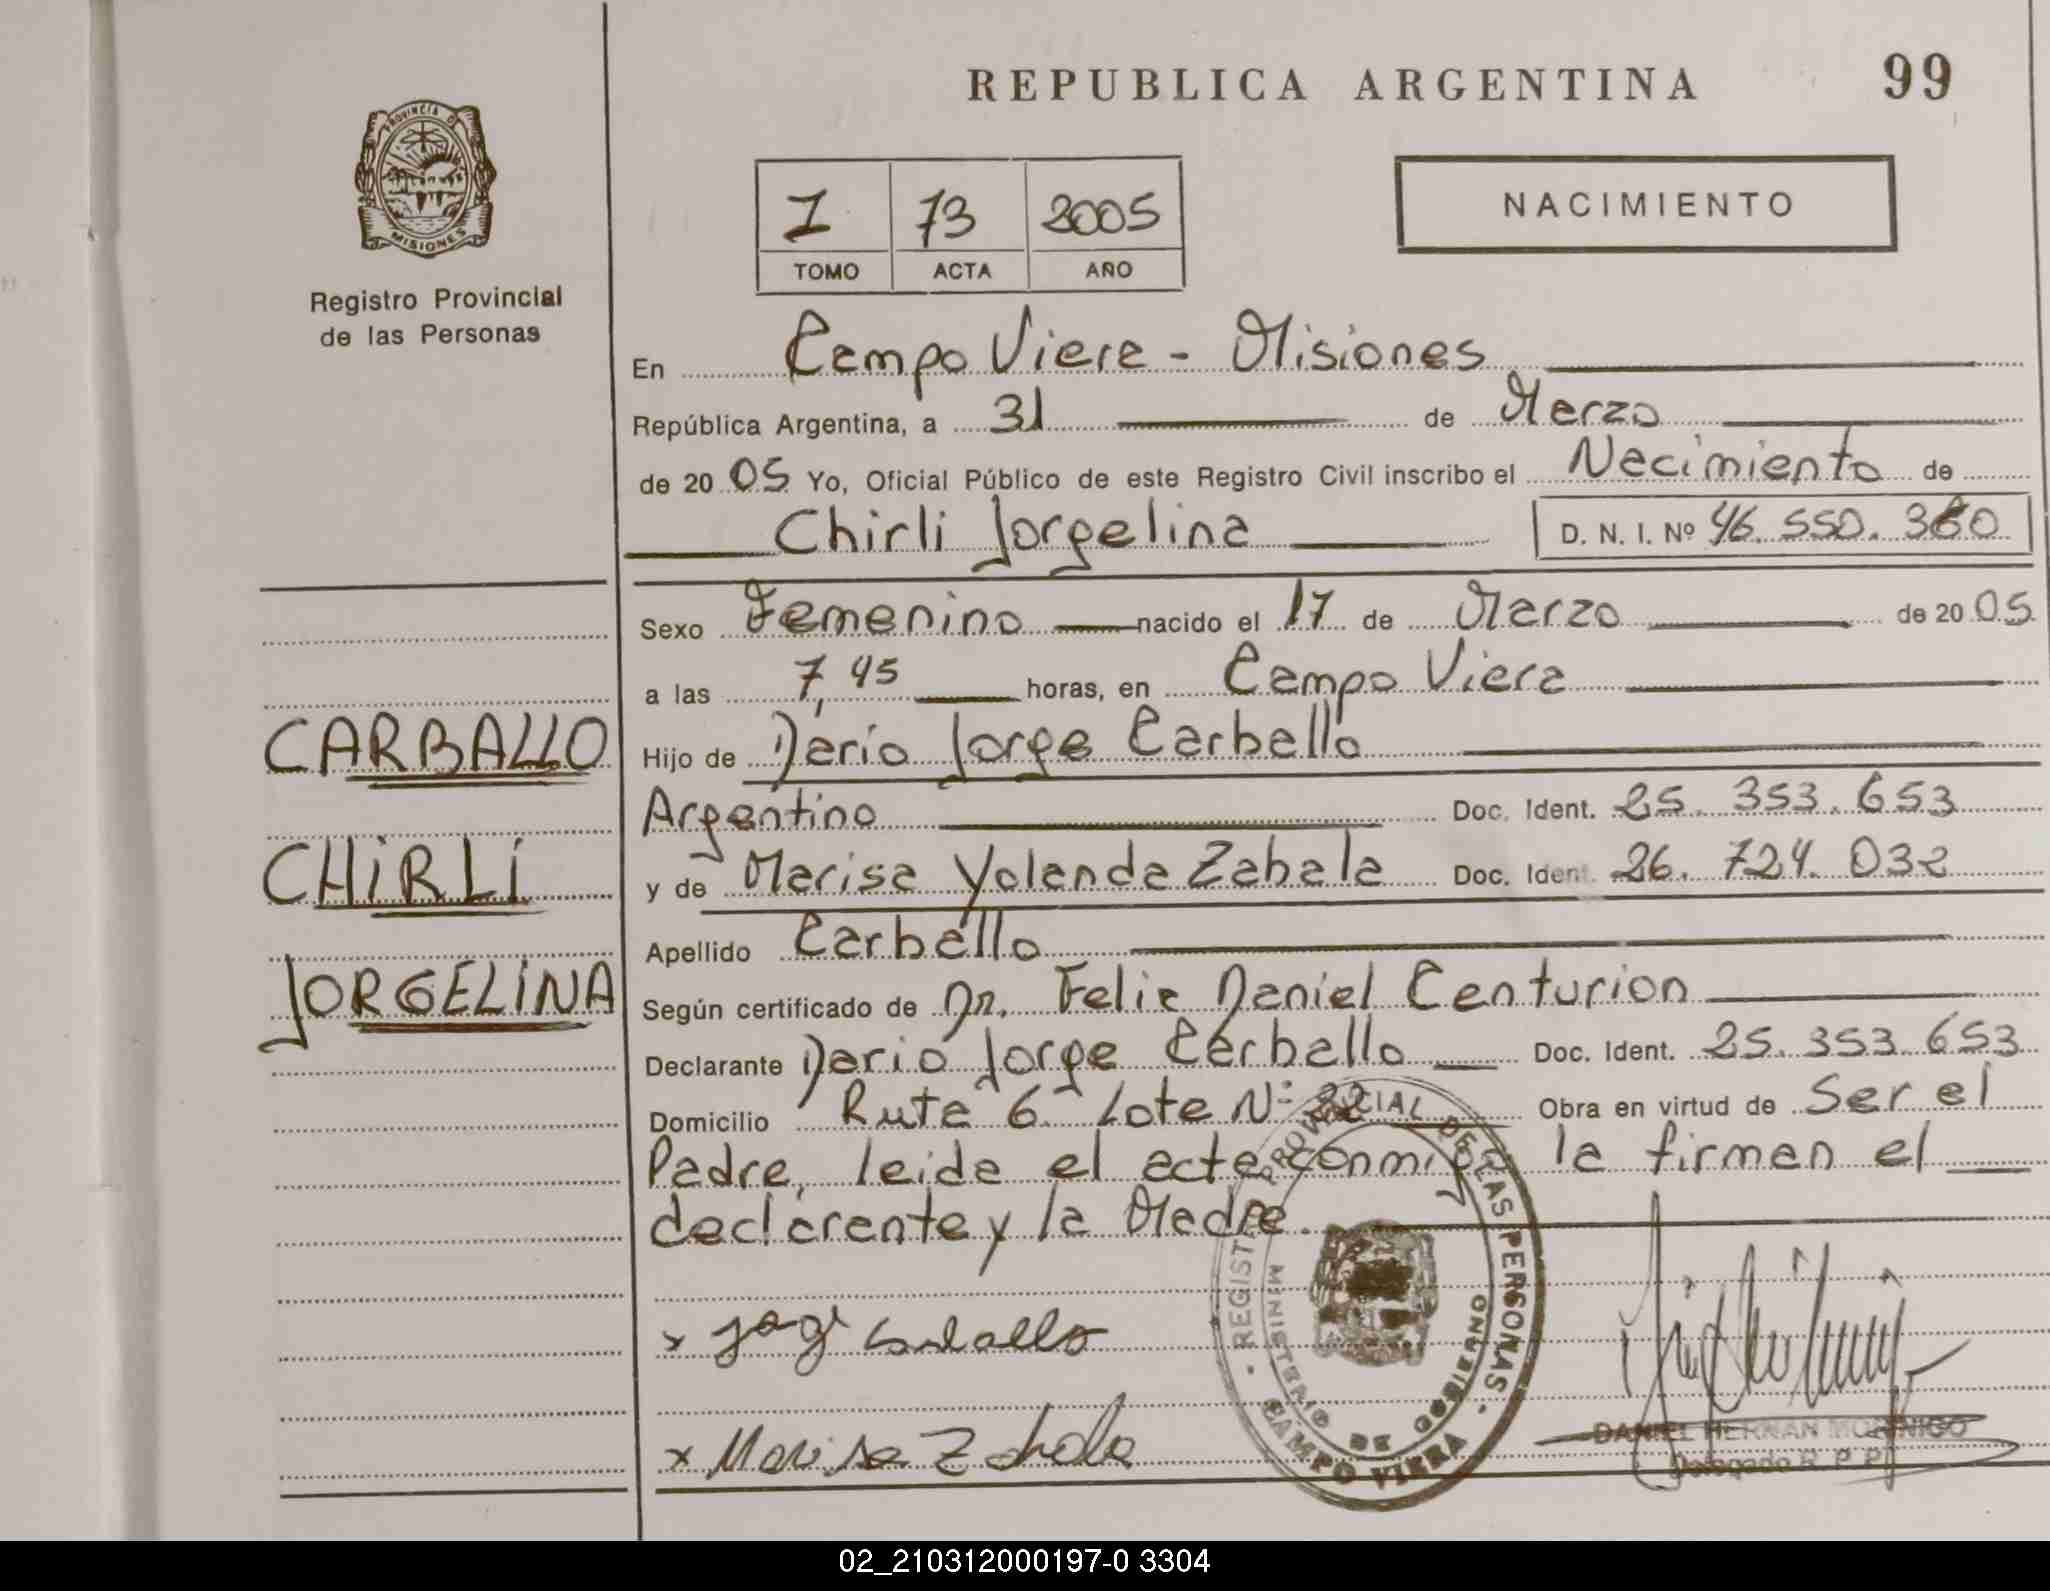 REPUBLICA ARGENTINA 99
PROVINCIA D
MISIONES
Registro Provincial
de las Personas
I 73 2005
TOMO ACTA AÑO
NACIMIENTO
En Campo Viera - Misiones
República Argentina, a 31 de Marzo
de 2005 Yo, Oficial Público de este Registro Civil inscribo el Nacimiento de
Chirli Jorgelina D. N. I. Nº 46.550.360
Sexo Femenino nacido el 17 de Marzo de 2005
a las 7,45 horas, en Campo Viera
CARBALLO
Hijo de Dario Jorge Carballo
Argentino Doc. Ident. 25.353.653
CHiRLi
y de Marisa Yolanda Zabala Doc. Ident. 26.724.032
Apellido Carballo
JORGELiNA
Según certificado de Dr. Felix Daniel Centurion
Declarante Dario Jorge Carballo Doc. Ident. 25.353.653
Domicilio Ruta 6 Lote Nº 22 Obra en virtud de Ser el
Padre, leida el acta conmigo la firman el
declarante y la Madre.
x Jorge Carballo
x Marisa Zabala
REGISTRO PROVINCIAL DE LAS PERSONAS
MINISTERIO DE GOBIERNO
CAMPO VIERA
DANIEL HERNAN MORINIGO
Delegado R. P. P.
02_210312000197-0 3304